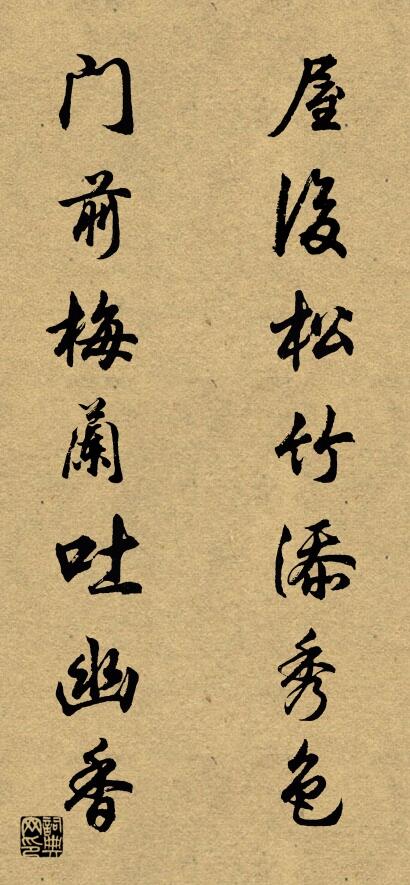 屋後松竹添秀色
门前梅蘭吐幽香
詞典网印